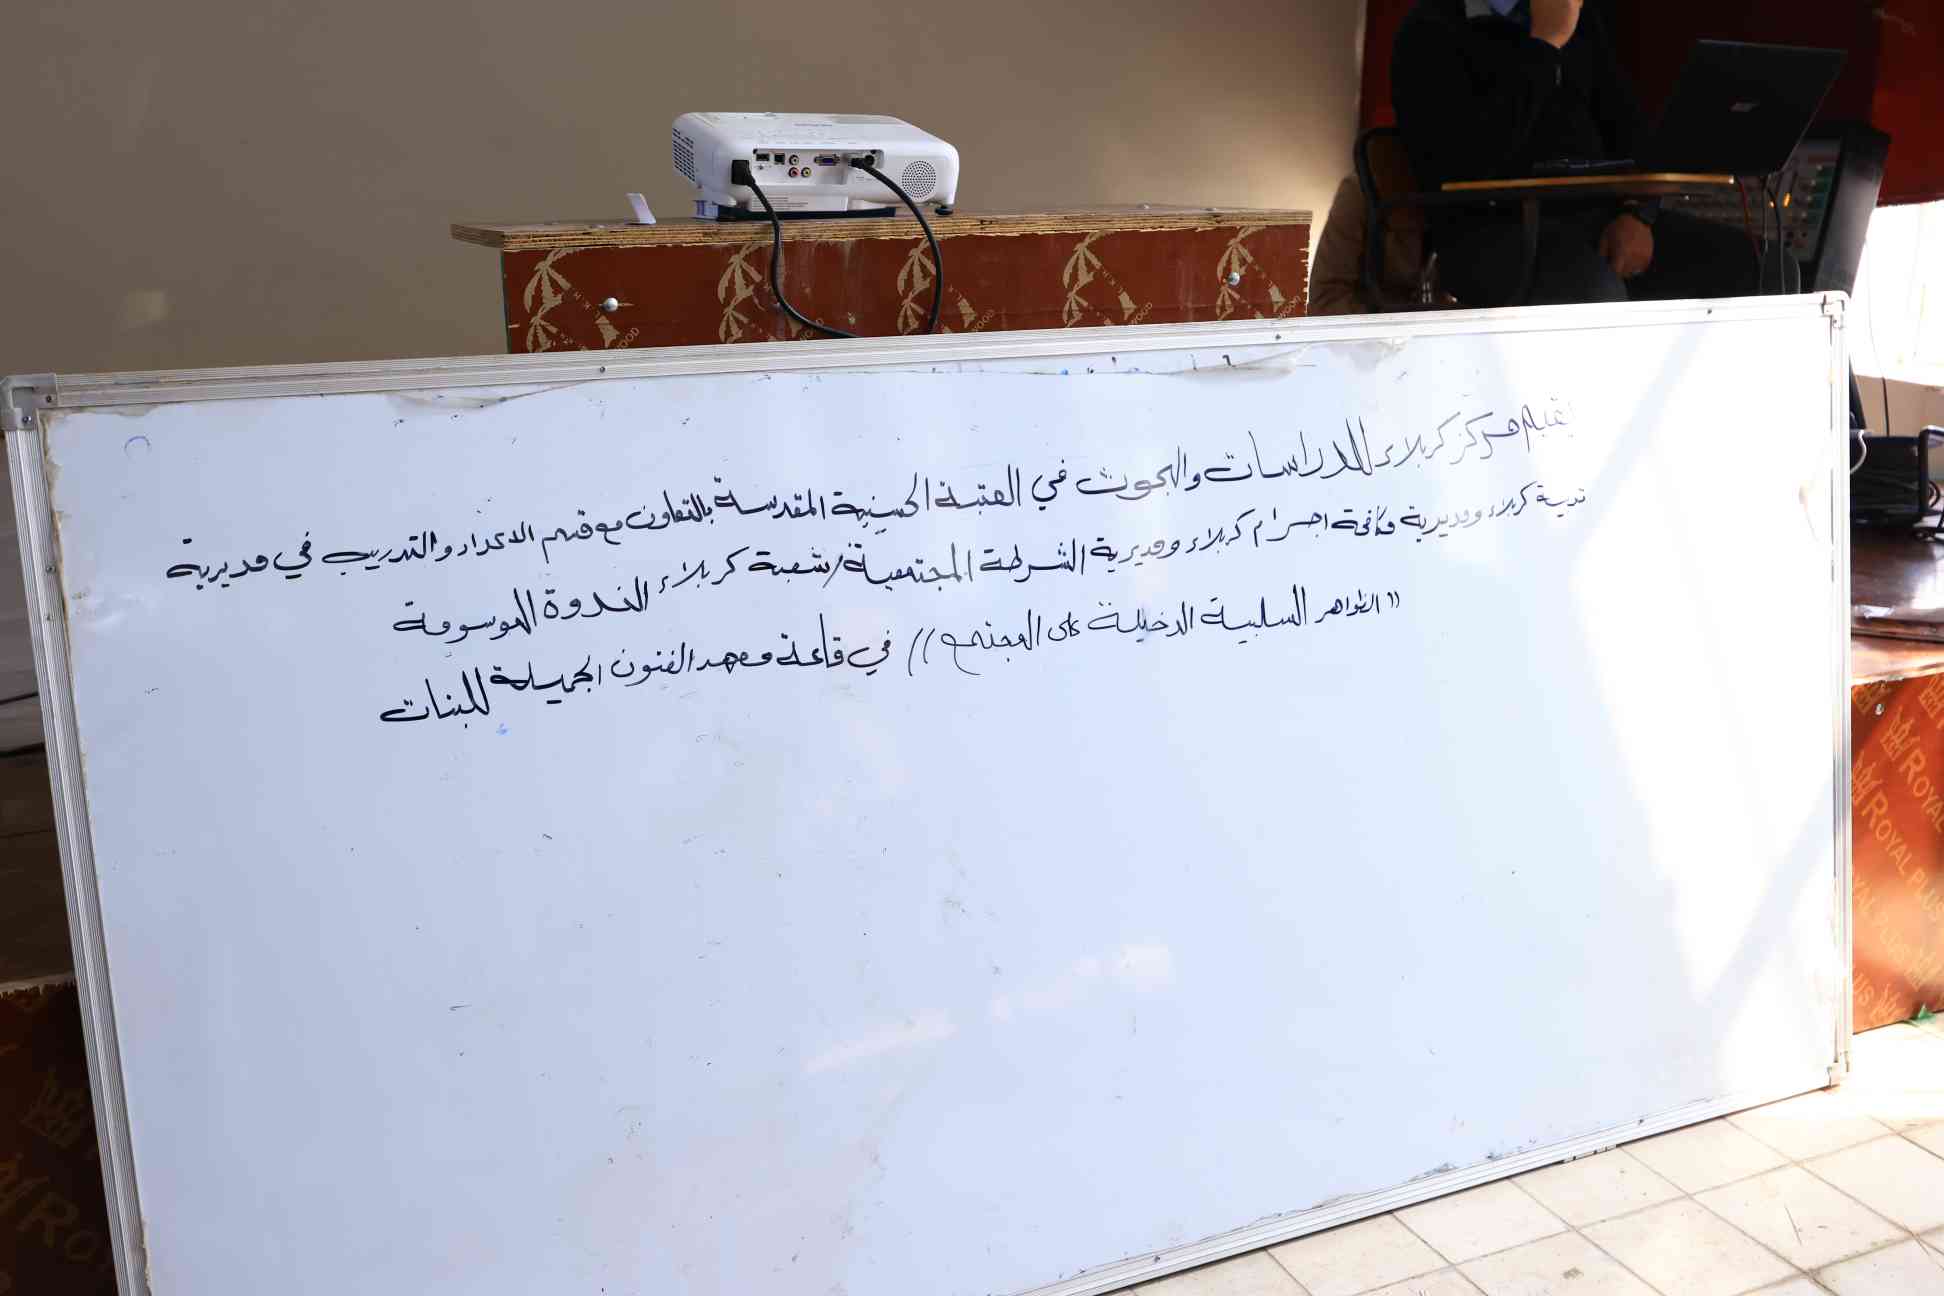 يقيم مركز كربلاء للدراسات والبحوث في العتبة الحسينية المقدسة بالتعاون مع قسم الاعداد والتدريب في مديرية
تربية كربلاء ومديرية مكافحة اجرام كربلاء ومديرية الشرطة المجتمعية/شعبة كربلاء الندوة الموسومة
((الظواهر السلبية الدخيلة على المجتمع)) في قاعة معهد الفنون الجميلة للبنات
ROYAL PLUS
ROYAL PLUS